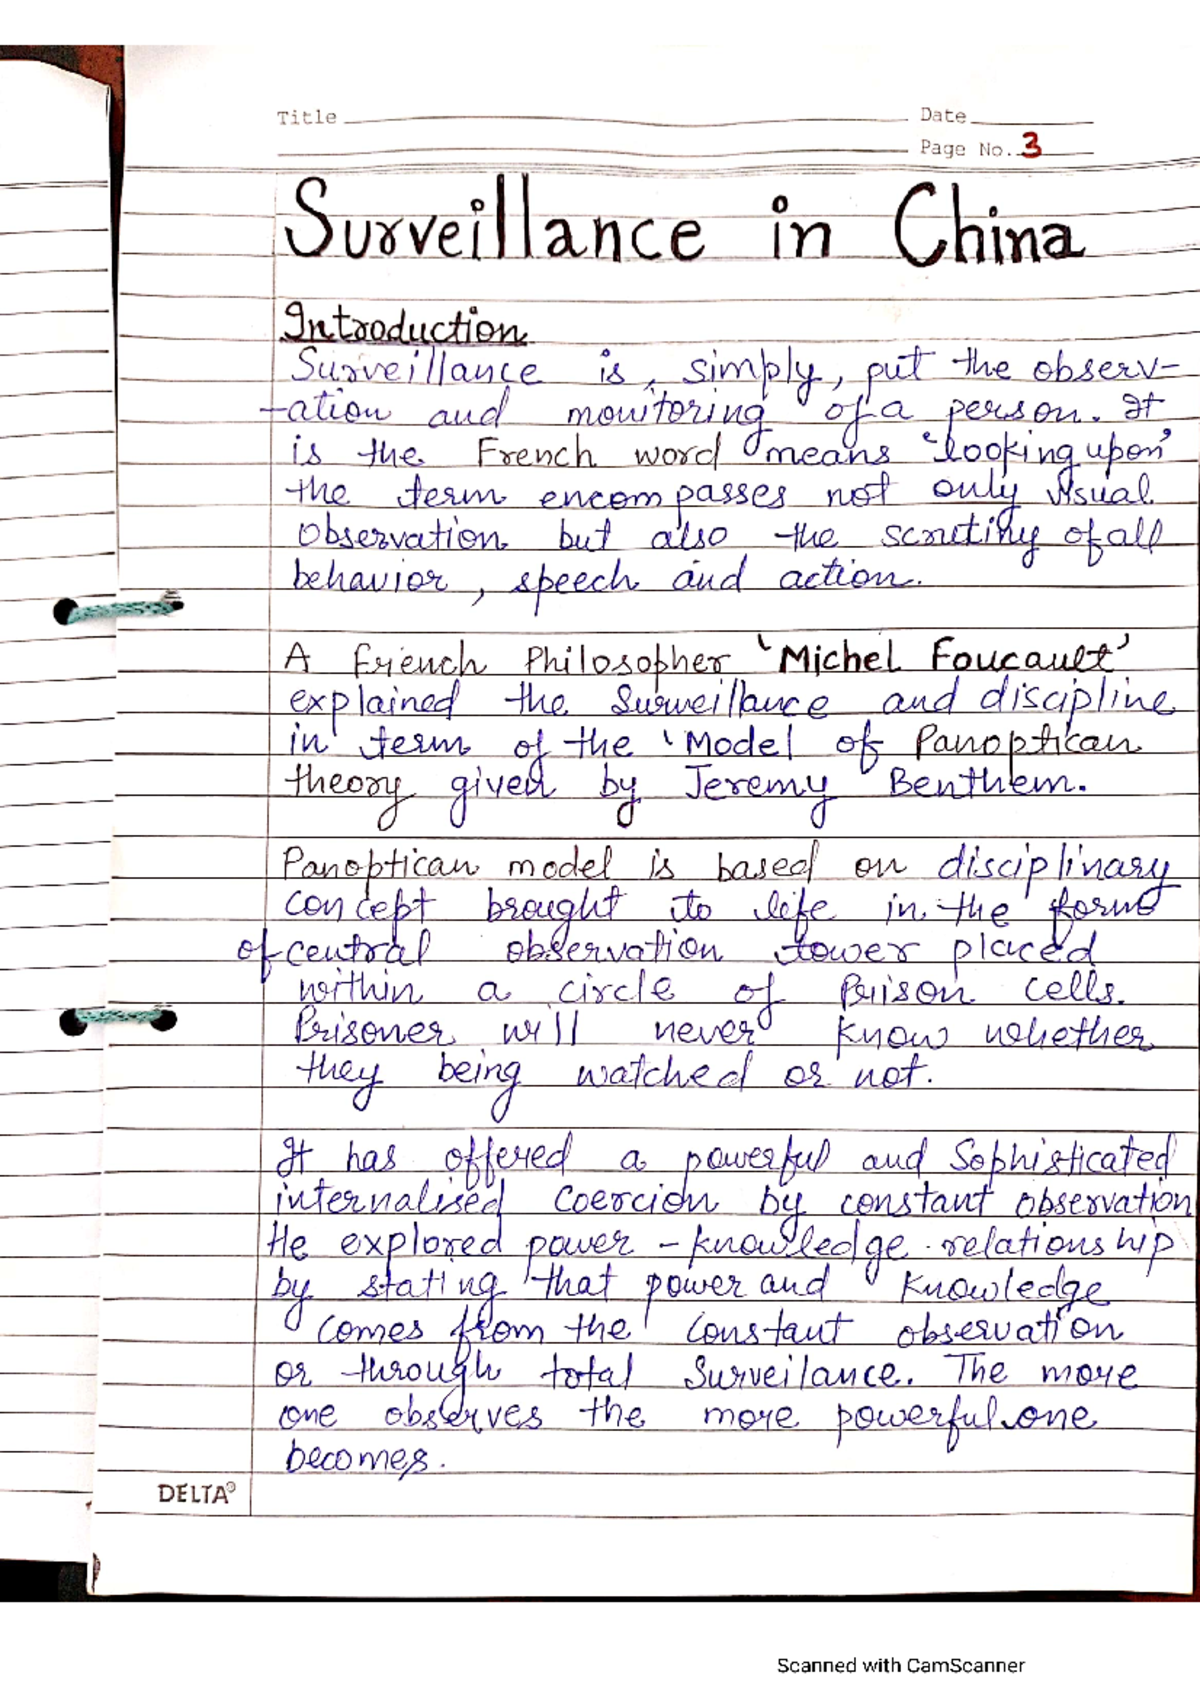 Title
Date
Page No. 3
Surveillance in China
Introduction
Surveillance is, simply, put the observ-
-ation and monitoring of a person. It
is the French word means 'looking upon'
the term encompasses not only visual
observation but also the scrutiny of all
behavior, speech and action.
A French Philosopher 'Michel Foucault'
explained the Surveillance and discipline
in term of the 'Model of Panoptican
theory given by Jeremy Benthem.
Panoptican model is based on disciplinary
concept brought to life in the form
of central observation tower placed
within a circle of Prison cells.
Prisoner will never know whether
they being watched or not.
It has offered a powerful and Sophisticated
internalised coercion by constant observation
He explored power - knowledge relationship
by stating that power and knowledge
comes from the constant observation
or through total Surveilance. The more
one observes the more powerful one
becomes.
DELTA
Scanned with CamScanner